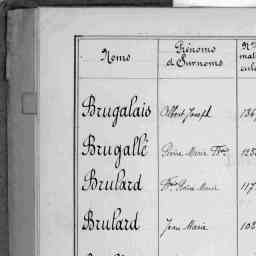 Noms
Prénoms
et Surnoms
Brugalais Albert Joseph
Brugallé Pierre Marie Frs
Brulard Frs Pierre Marie 117
Brulard Jean Marie